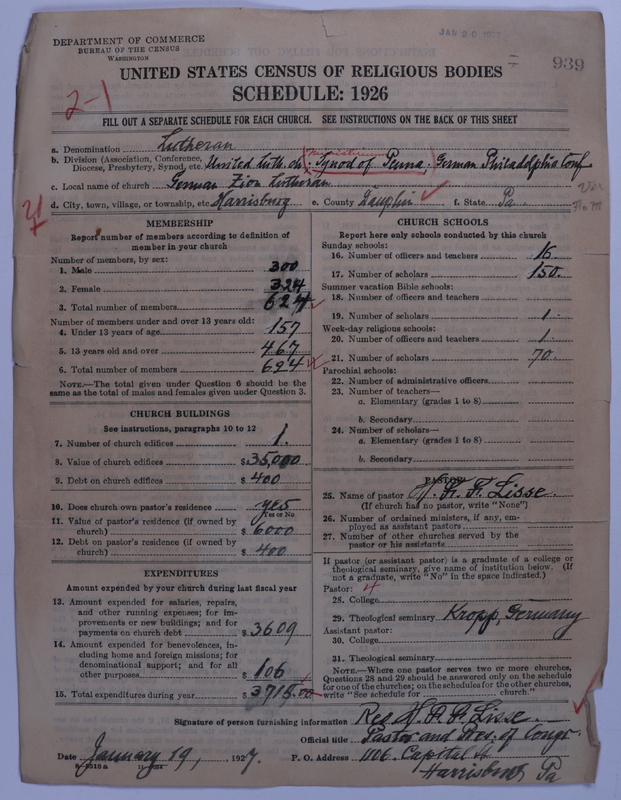 JAN 20 1927
939
DEPARTMENT OF COMMERCE
BUREAU OF THE CENSUS
WASHINGTON
UNITED STATES CENSUS OF RELIGIOUS BODIES
SCHEDULE: 1926
2-1
FILL OUT A SEPARATE SCHEDULE FOR EACH CHURCH. SEE INSTRUCTIONS ON THE BACK OF THIS SHEET
a. Denomination Lutheran
b. Division (Association, Conference, Diocese, Presbytery, Synod, etc. United Luth. ch. Synod of Penna; German Philadelphia Conf
c. Local name of church German Zion Lutheran
d. City, town, village, or township, etc. Harrisburg e. County Dauphin f. State Pa
MEMBERSHIP
Report number of members according to definition of
member in your church
Number of members, by sex:
1. Male 300
2. Female 324
3. Total number of members 624
Number of members under and over 13 years old:
4. Under 13 years of age 157
5. 13 years old and over 467
6. Total number of members 624
NOTE.—The total given under Question 6 should be the
same as the total of males and females given under Question 3.
CHURCH BUILDINGS
See instructions, paragraphs 10 to 12
7. Number of church edifices 1.
8. Value of church edifices $35,000
9. Debt on church edifices $400
10. Does church own pastor's residence yes
Yes or No
11. Value of pastor's residence (if owned by
church) $6000
12. Debt on pastor's residence (if owned by
church) $400
EXPENDITURES
Amount expended by your church during last fiscal year
13. Amount expended for salaries, repairs,
and other running expenses; for im-
provements or new buildings; and for
payments on church debt $3609
14. Amount expended for benevolences, in-
cluding home and foreign missions; for
denominational support; and for all
other purposes $106
15. Total expenditures during year $3715.00
CHURCH SCHOOLS
Report here only schools conducted by this church
Sunday schools:
16. Number of officers and teachers 16
17. Number of scholars 150.
Summer vacation Bible schools:
18. Number of officers and teachers
19. Number of scholars 1
Week-day religious schools:
20. Number of officers and teachers 1
21. Number of scholars 70.
Parochial schools:
22. Number of administrative officers
23. Number of teachers—
a. Elementary (grades 1 to 8)
b. Secondary
24. Number of scholars—
a. Elementary (grades 1 to 8)
b. Secondary
PASTOR
25. Name of pastor H. R. F. Lisse.
(If church has no pastor, write "None")
26. Number of ordained ministers, if any, em-
ployed as assistant pastors
27. Number of other churches served by the
pastor or his assistants
If pastor (or assistant pastor) is a graduate of a college or
theological seminary, give name of institution below. (If
not a graduate, write "No" in the space indicated.)
Pastor:
28. College
29. Theological seminary Kropp, Germany
Assistant pastor:
30. College
31. Theological seminary
NOTE.—Where one pastor serves two or more churches,
Questions 28 and 29 should be answered only on the schedule
for one of the churches; on the schedules for the other churches,
write "See schedule for church."
Signature of person furnishing information Rev. H. R. F. Lisse
Official title Pastor and Pres. of Congr
Date January 19, 1927. P. O. Address 1106. Capital St
Harrisburg Pa